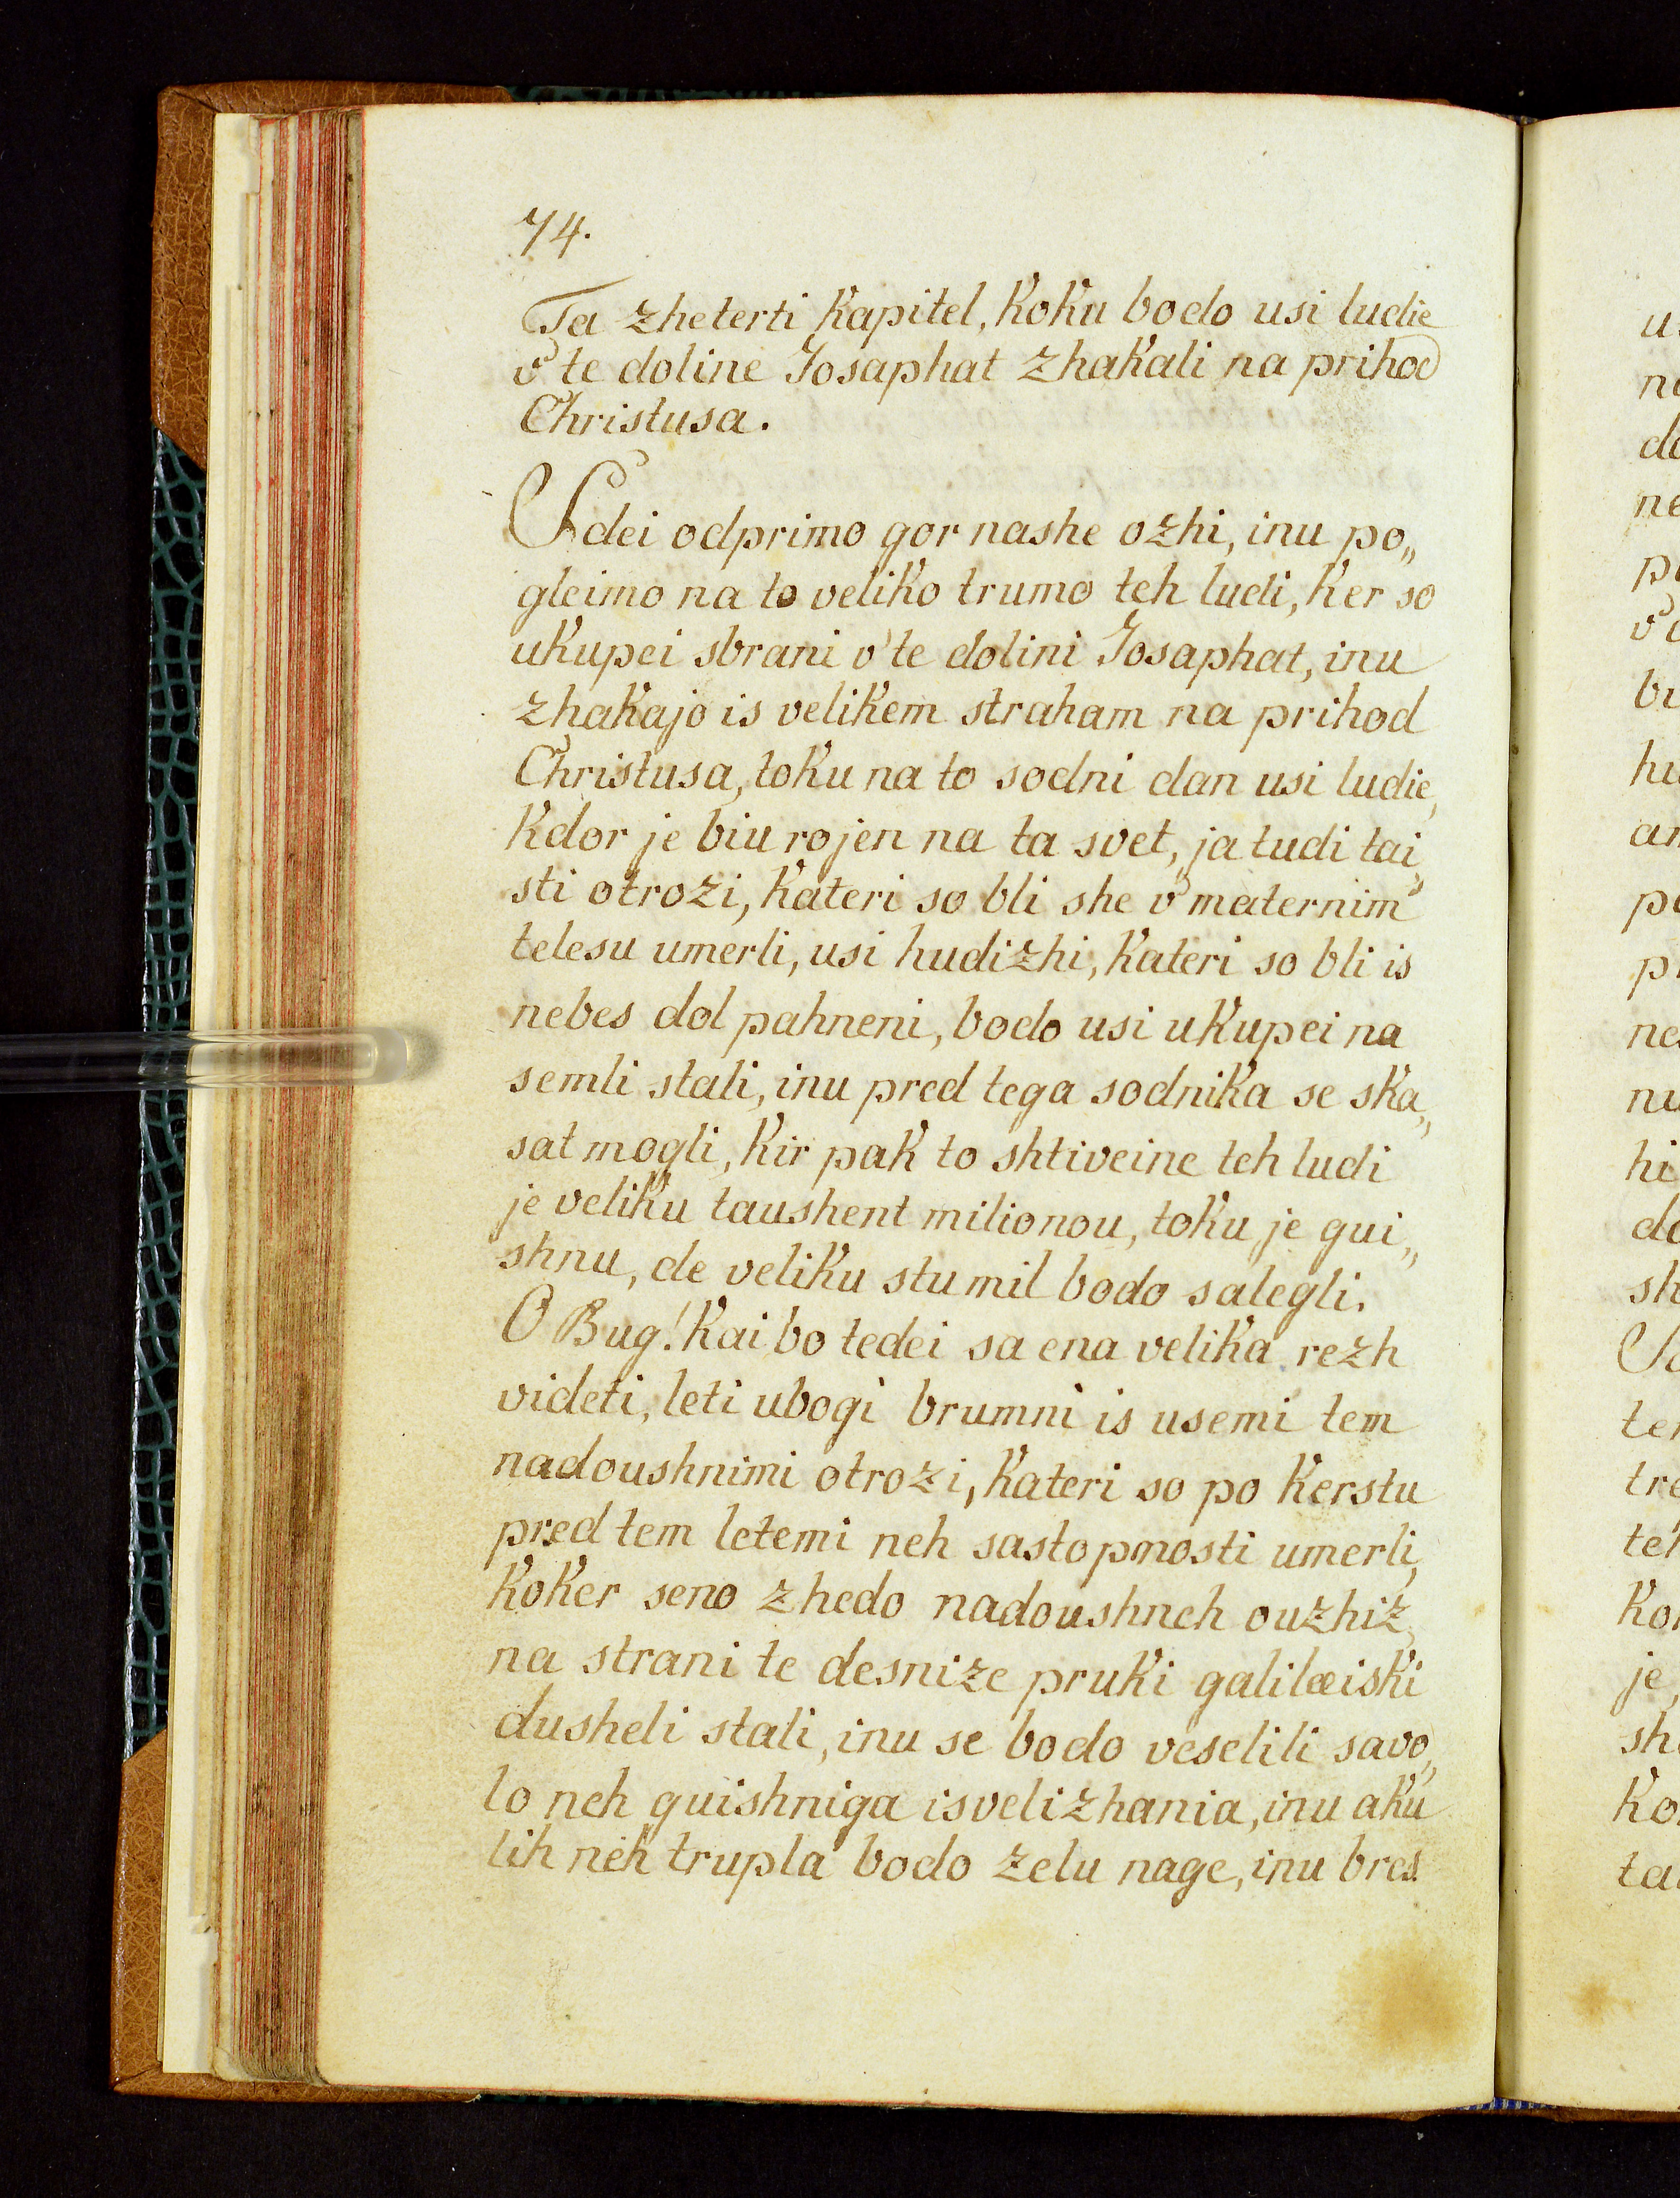 74.
Ta zheterti Kapitel, KoKu bodo usi ludie
v te doline Josaphat zhaKali na prihod
Christusa.
Sdei odprimo gor nashe ozhi, inu po„
gleimo na to veliKo trumo teh ludi, Ker so
uKupei sbrani v te dolini Josaphat, inu
zhaKajo is veliKem straham na prihod
Christusa, toKu na to sodni dan usi ludie,
Kdor je biu rojen na ta svet, ja tudi tai„
sti otrozi, Kateri so bli she v maternim
telesu umerli, usi hudizhi, Kateri so bli is
nebes dol pahneni, bodo usi uKupei na
semli stali, inu pred tega sodniKa se sKa„
sat mogli, Kir paK to shtiveine teh ludi
je veliKu taushent milionou, toKu je gui„
shnu, de veliKu stu mil bodo salegli.
O Bug! Kai bo tedei sa ena veliKa rezh
videti, leti ubogi brumni is usemi tem
nadoushnimi otrozi, Kateri so po Kerstu
pred tem letemi neh sastopnosti umerli,
KoKer seno zhedo nadoushneh ouzhiz,
na strani te desnize pruKi galilæisKi
dusheli stali, inu se bodo veselili savo„
lo neh guishniga isvelizhania, inu aKu
lih neh trupla bodo zelu nage, inu bres